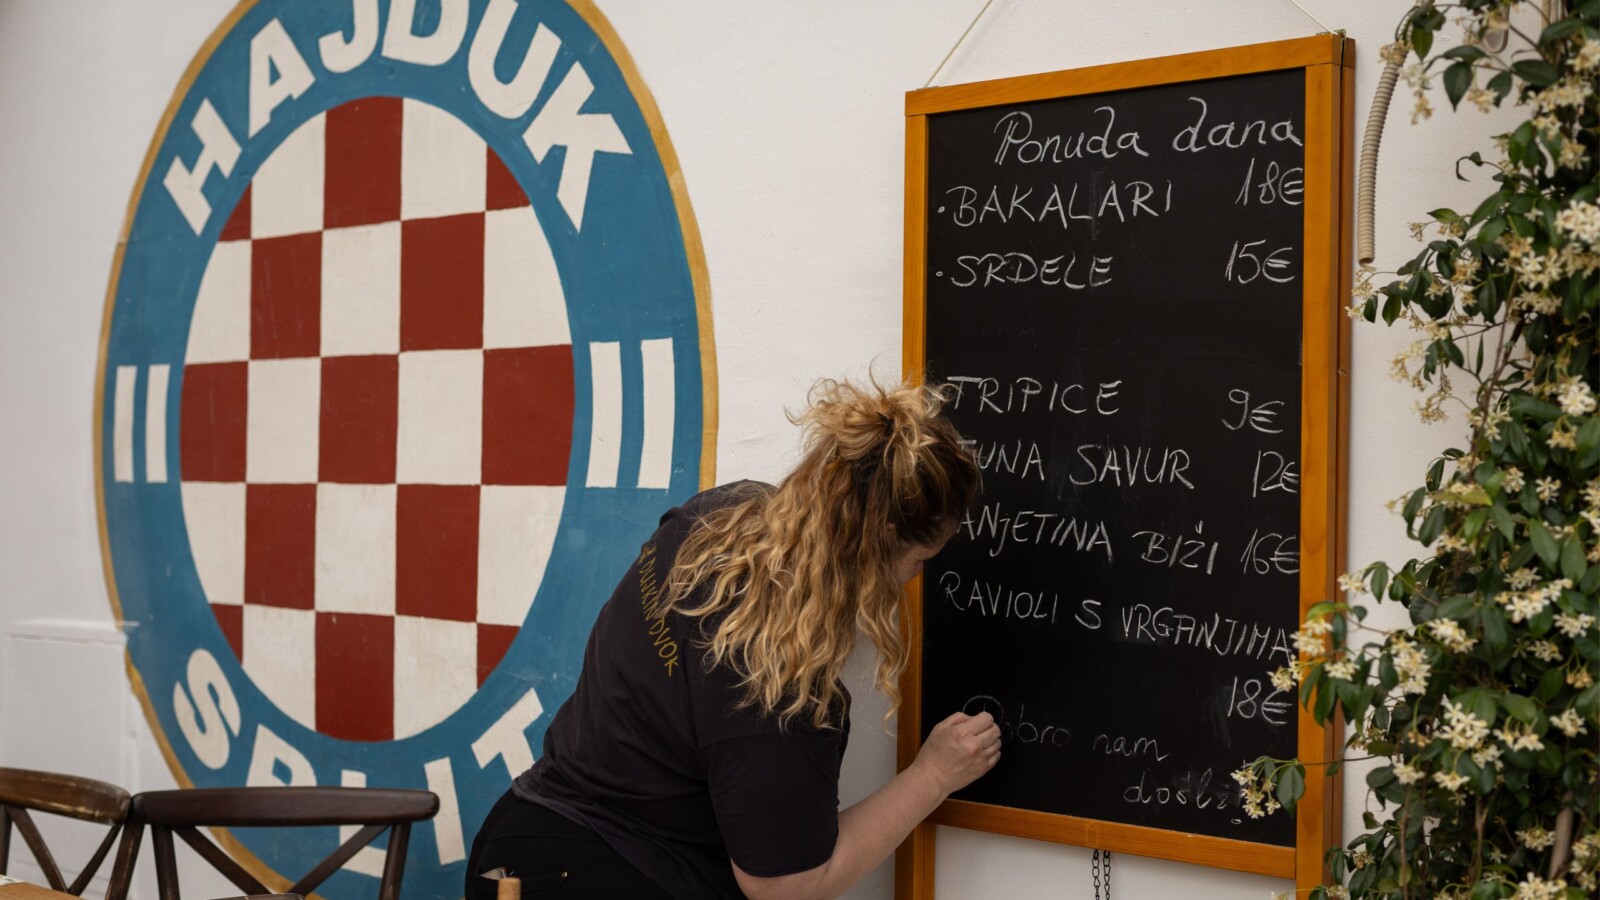 HAJDUK
SPLIT
Ponuda dana
• BAKALARI 18€
• SRDELE 15€
TRIPICE 9€
TUNA SAVUR 12€
ANJETINA BIŽI 16€
RAVIOLI S VRGANJIMA
18€
Dobro nam